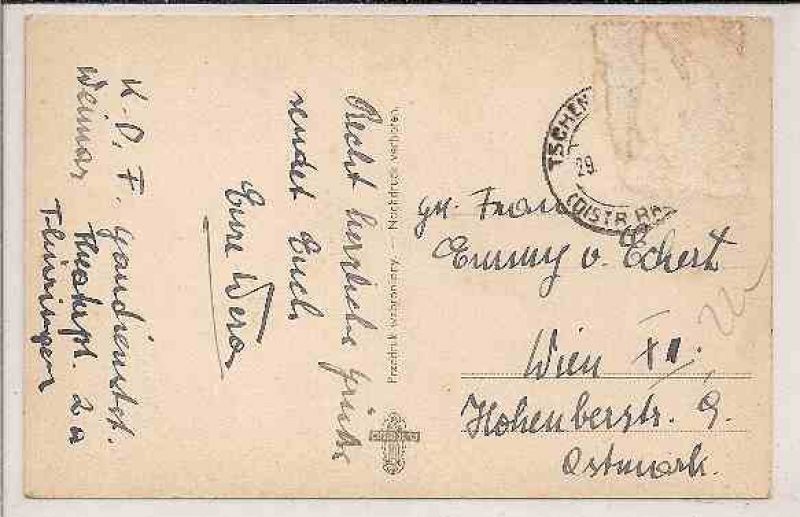 Recht herzliche Grüße
sendet Euch
Eure Wera
K. D. F. Gaudienstst.
Weimar
2a
Thüringen
Przedruk wzbroniony. — Nachdruck verboten.
TSCHEN
29.
(DISTR. RA
gn. Frau
Emmy v. Eckert
Wien XII.
Hohenbergstr. 9.
Ostmark.